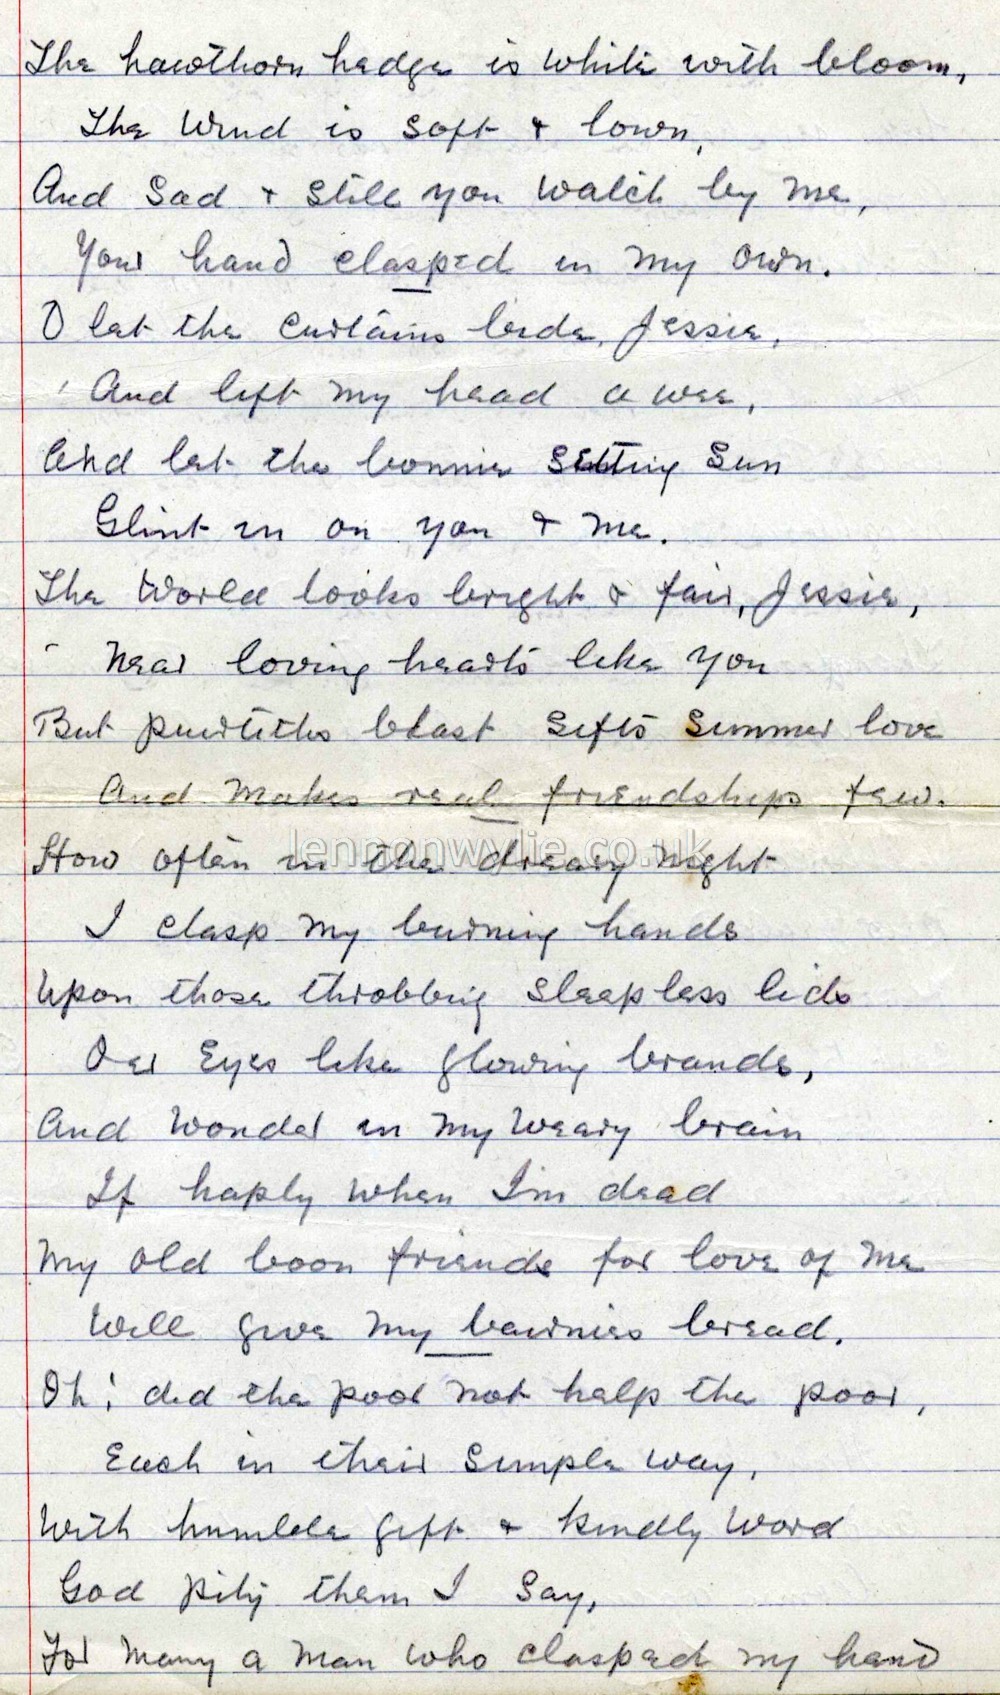 The hawthorn hedge is white with bloom,
The Wind is soft & lown,
And Sad & Still you Watch by Me,
Your hand clasped in My Own.
O let the Curtains bide, Jessie,
And lift My head a wee,
And let the bonnie Setting Sun
Glint in on you & Me.
The World looks bright & fair, Jessie,
Near loving hearts like You
But puirtiths blast Sifts Summer love
And Makes real friendships few.
lennonwylie.co.uk
How often in the dreary Night
I clasp My burning hands
Upon those throbbing Sleepless lids
Oer Eyes like glowing brands,
And Wonder in My Weary brain
If haply when I'm dead
My Old boon friends for love of Me
Will give My bairnies bread.
Oh! did the poor Not help the poor,
Each in their Simple Way,
With humble gift & kindly Word
God pity them I Say,
For Many a Man Who clasped My hand